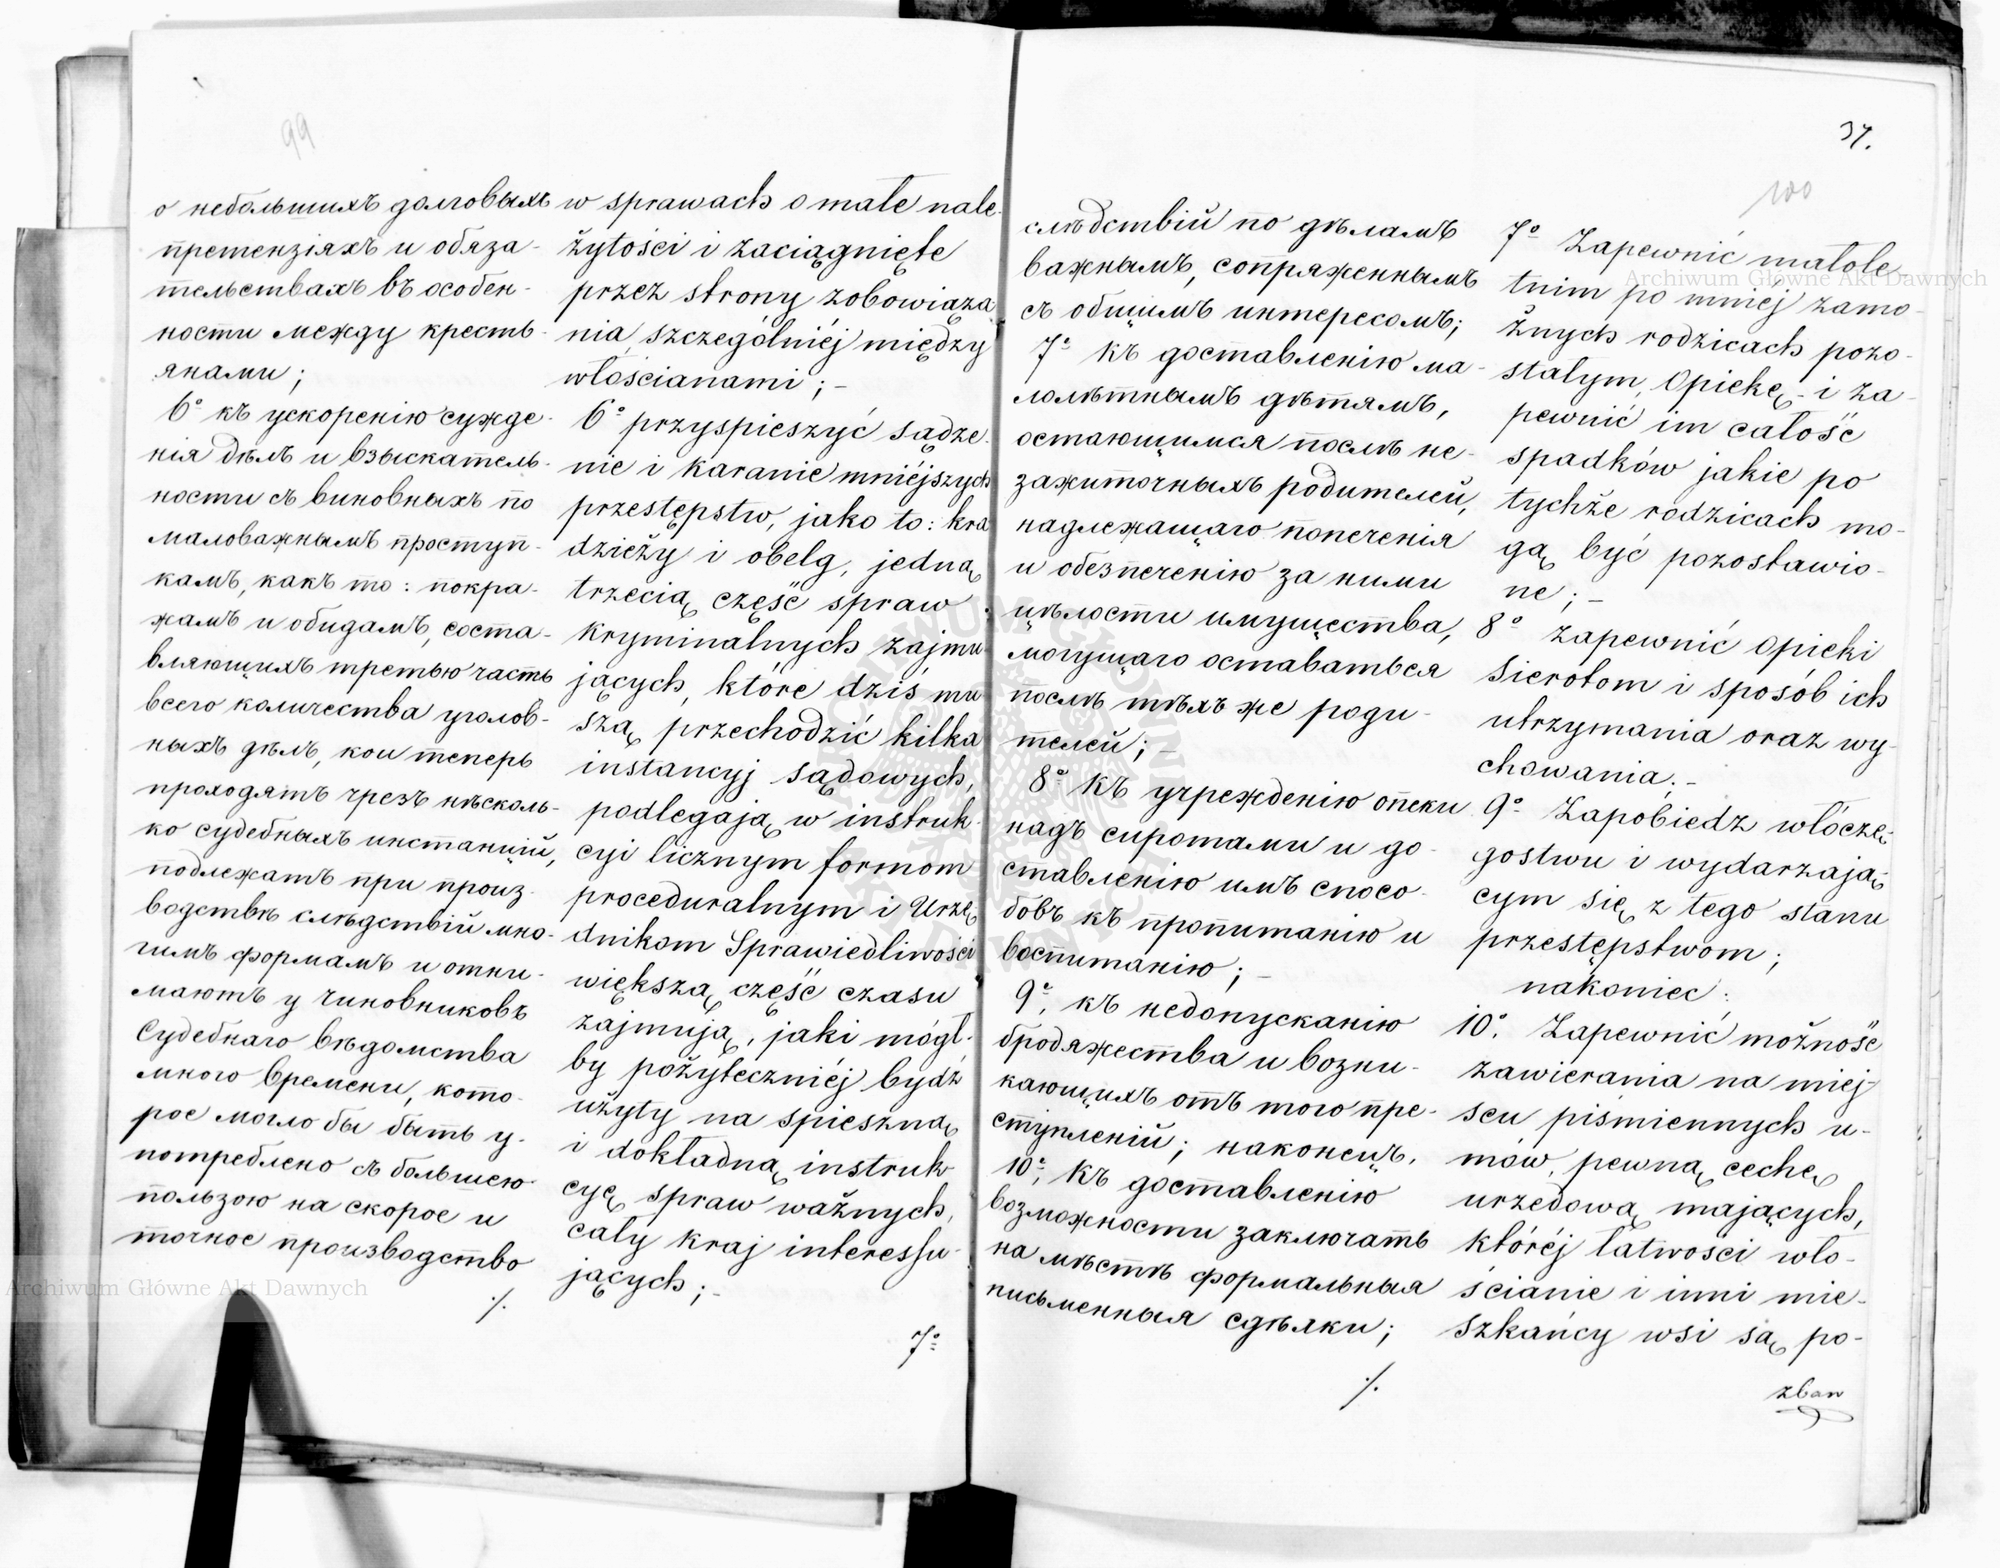 99
о небольшихъ долговыхъ
претензіяхъ и обяза-
тельствахъ въ особен-
ности между кресть-
янами;
6º къ ускоренію сужде-
нія дѣлъ и взыскатель-
ности съ виновныхъ по
маловажнымъ проступ-
камъ, какъ то: покра-
жамъ и обидамъ, соста-
вляющихъ третью часть
всего количества уголов-
ныхъ дѣлъ, кои теперь
проходятъ чрезъ нѣсколь-
ко судебныхъ инстанцій,
подлежатъ при произ-
водствѣ слѣдствій мно-
гимъ формамъ и отни-
маютъ у чиновниковъ
Судебнаго вѣдомства
много времени, кото-
рое могло бы быть у-
потреблено съ большею
пользою на скорое и
точное производство
./.
w sprawach o małe nale-
żytości i zaciągnięte
przez strony zobowiąza-
nia, szczególniéj między
włościanami; -
6º przyspieszyć sądze-
nie i karanie mniéjszych
przestępstw, jako to: kra
dzieży i obelg, jedną
trzecią część spraw
kryminalnych zajmu-
jących, które dziś mu
szą przechodzić kilka
instancyj sądowych,
podlegają w instruk-
cyi licznym formom
proceduralnym i Urzę
dnikom Sprawiedliwości
większą część czasu
zajmują, jaki mógł-
by pożyteczniéj bydź
użyty na spieszną
i dokładną instruk-
cyę spraw ważnych,
cały kraj interessu-
jących; -
7º
37.
100
слѣдствій по дѣламъ
важнымъ, сопряженнымъ
съ общимъ интересомъ;
7º къ доставленію ма-
лолѣтнымъ дѣтямъ,
остающимся послѣ не-
зажиточныхъ родителей,
надлежащаго попеченія
и обезпеченію за ними
цѣлости имущества,
могущаго оставаться
послѣ тѣхъ же роди-
телей; -
8º къ учрежденію опеки
надъ сиротами и до-
ставленію имъ спосо-
бовъ къ пропитанію и
воспитанію; -
9º къ недопусканію
бродяжества и возни-
кающихъ отъ того пре-
ступленій; наконецъ.
10º къ доставленію
возможности заключать
на мѣстѣ формальныя
письменныя сдѣлки;
./.
7º Zapewnić małole-
tnim po mniéj zamo-
żnych rodzicach pozo-
stałym, Opiekę - i za-
pewnić im całość
spadków jakie po
tychże rodzicach mo-
gą być pozostawio-
ne; -
8º Zapewnić Opieki
Sierotom i sposób ich
utrzymania oraz wy-
chowania. -
9º Zapobiedz włóczę-
gostwu i wydarzają-
cym się z tego stanu
przestępstwom;
nakoniec:
10º Zapewnić możność
zawierania na miej-
scu piśmiennych u-
mów, pewną cechę
urzędową mających,
któréj łatwości wło-
ścianie i inni mie-
szkańcy wsi są po-
zbaw